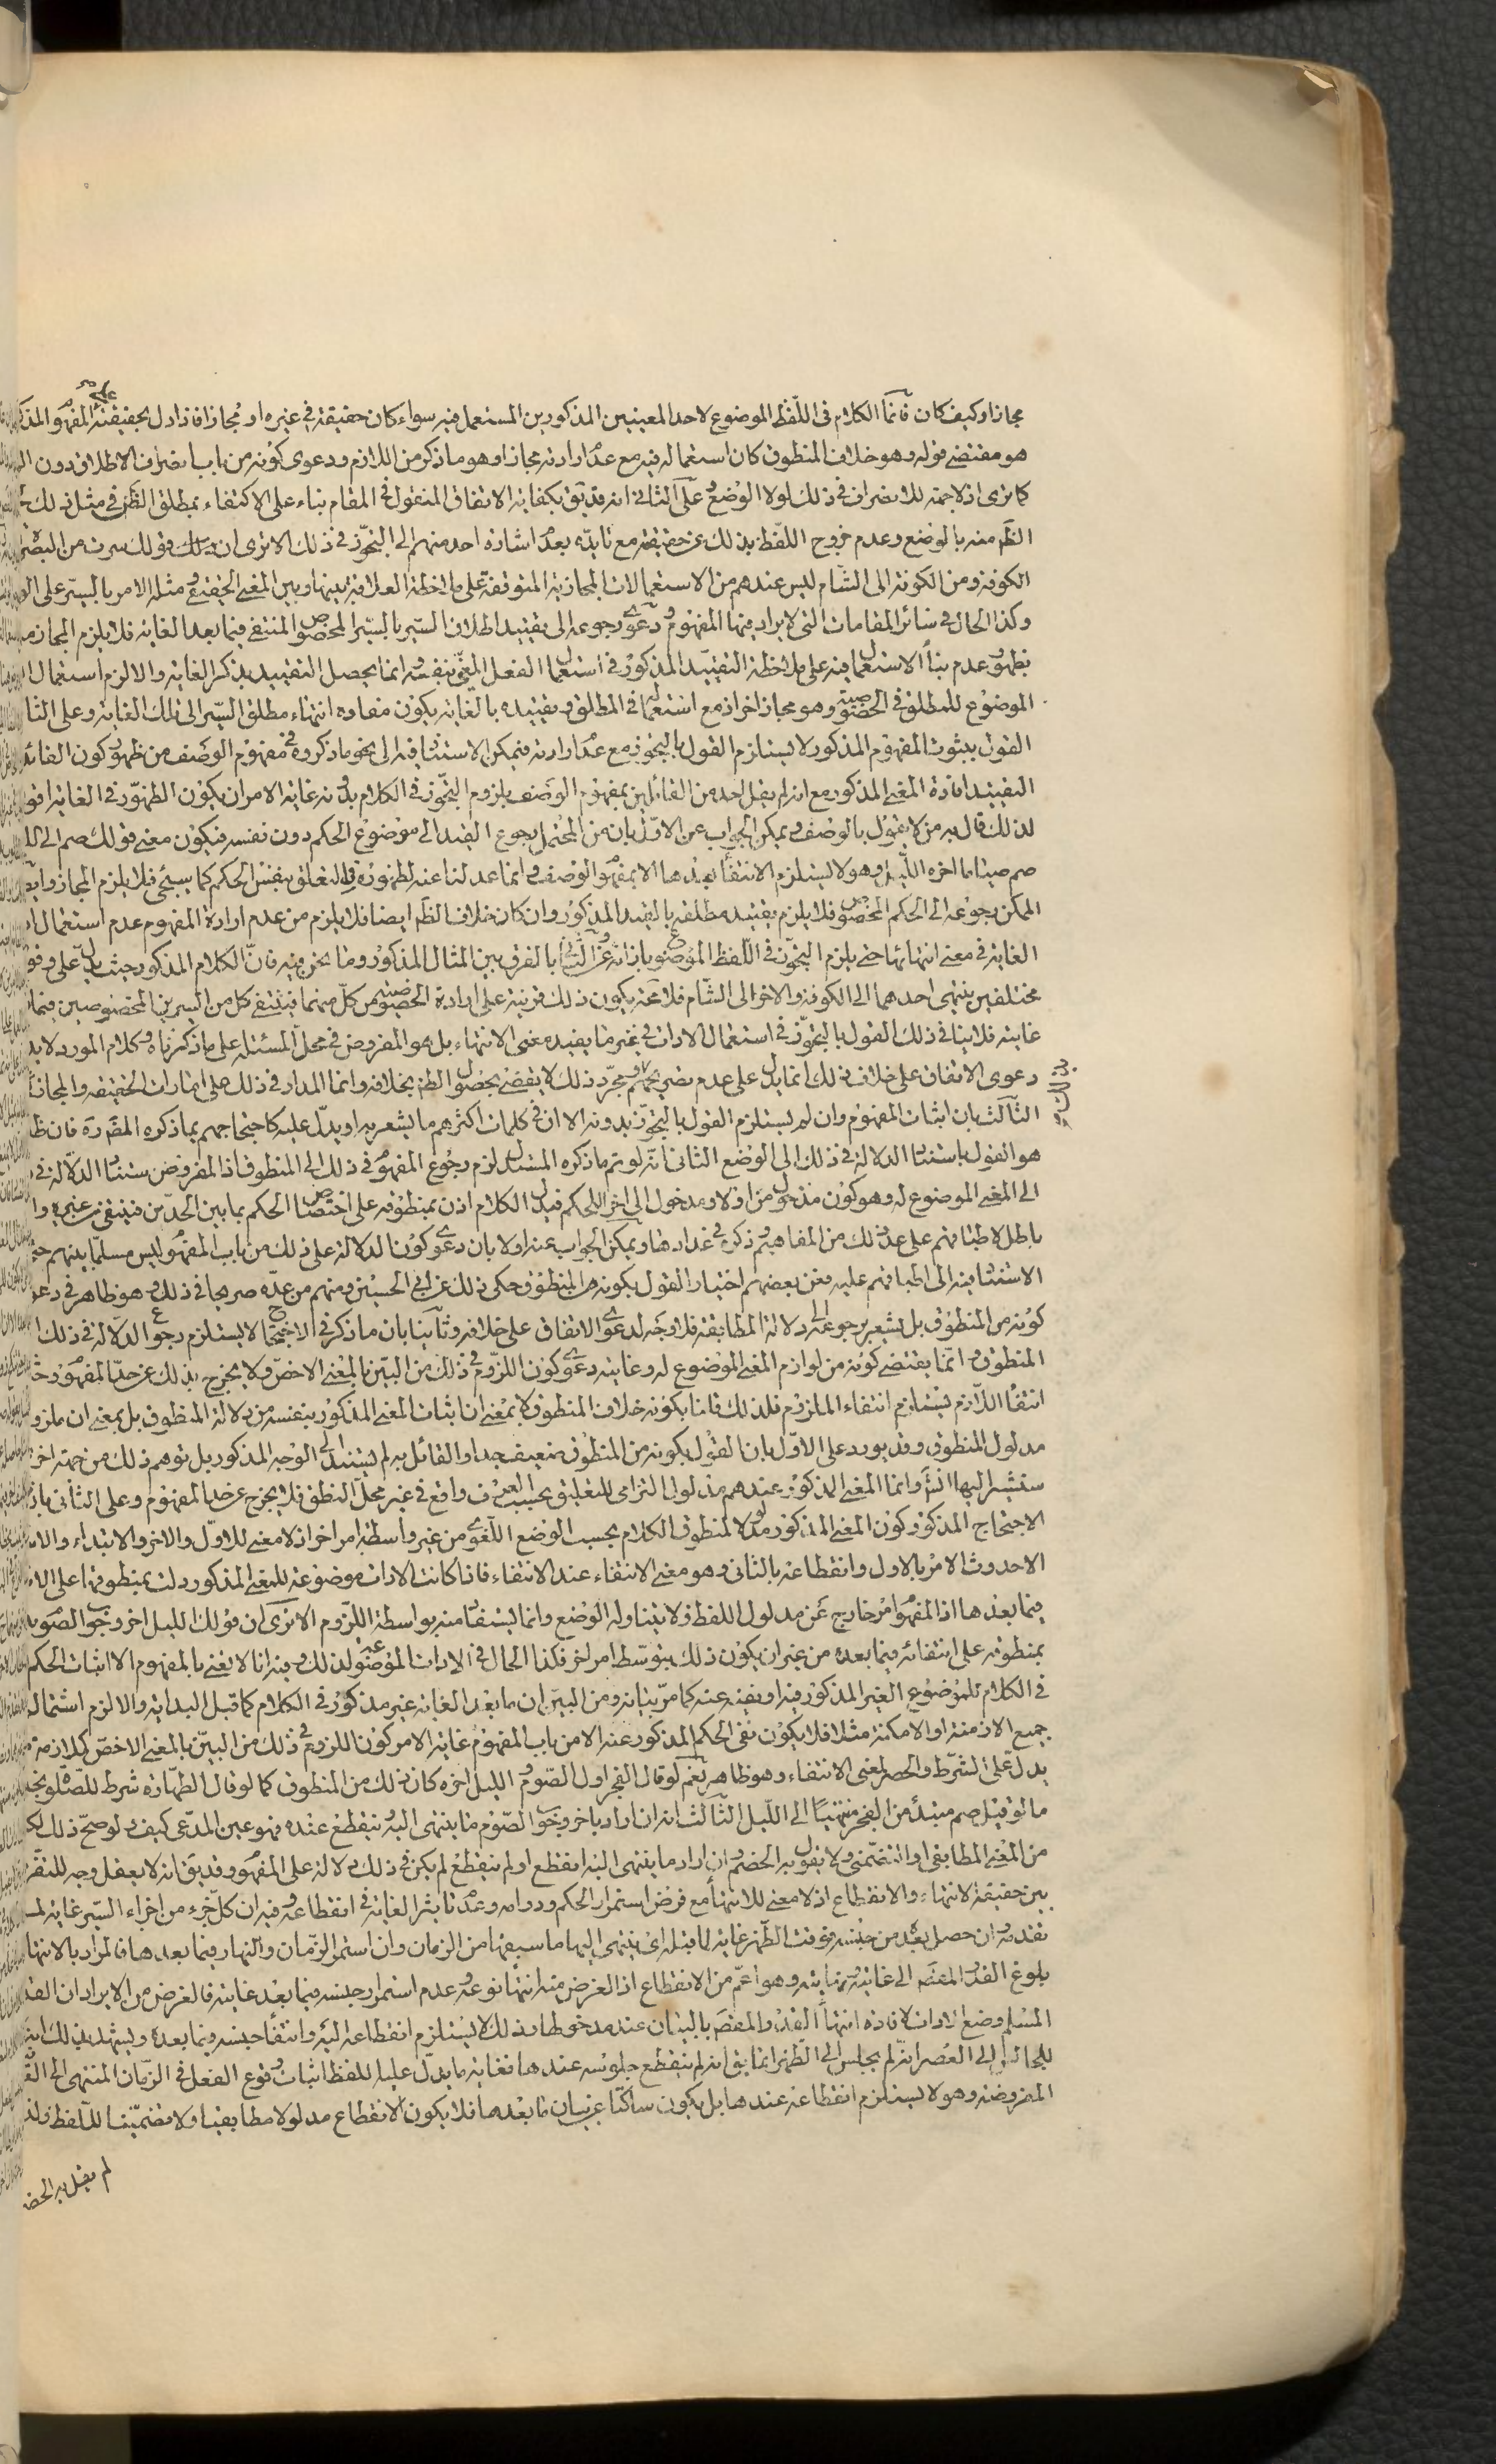 مجازا وكيف كان فانما الكلام فى اللّفظ الموضوع لاحد المعنيين المذكورين المستعمل فيه سواء كان حقيقة فى غيره او مجازا فاذا دل بحقيقته
هو مقتضى قوله وهو خلاف المنطوق كان استعماله فيه مع عدم ارادته مجازا وهو ما ذكر من اللازم ودعوى كونه من باب انصراف الاطلاق دون
كما ترى اذ لا جهة للانصراف فى ذلك لولا الوضع وعلى الثانى انه قد يق بكفاية الاتفاق المنقول فى المقام بناء على الاكتفاء بمطلق الظن فى مثل ذلك
الظم منه بالوضع وعدم خروج اللّفظ بذلك عن حقيقته مع تايده بعدم اشارة احد منهم الى التجوّز فى ذلك الا ترى ان قولك سرت من البصرة
الكوفة ومن الكوفة الى الشّام ليس عندهم من الاستعمالات المجازية المتوقفة على ملاحظة العلاقة بينها وبين المعنى الحقيقى ومثله الامر بالسير على
وكذا الحال فى سائر المقامات التى لا يراد فيها المفهوم ودعوى رجوعه الى تقييد اطلاق السّير بالسّير المخصوص المنتفى فيما بعد الغاية فلا يلزم المجاز
بظهور عدم بناء الاستعمال فيه على ملاحظة التقييد المذكور فى استعمال الفعل المغيّى بنفسه وانما يحصل التقييد بذكر الغاية والا لزم استعمال
الموضوع للمطلق فى الخصوصية وهو مجاز اخر اذ مع استعماله فى المطلق وتقييده بالغاية يكون مفاده انتهاء مطلق السّير الى تلك الغاية وعلى
القول بثبوت المفهوم المذكور لا يستلزم القول بالتجوز مع عدم ارادته فيمكن الاستناد فيه الى نحو ما ذكروه فى مفهوم الوصف من ظهور كون
التقييد افادة المعنى المذكور مع انه لم يقل احد من القائلين بمفهوم الوصف بلزوم التجوّز فى الكلام بدونه غاية الامر ان يكون الظهور فى الغاية اقوى
لذلك قال به من لا يقول بالوصف ويمكن الجواب عن الاوّل بان من المحتمل رجوع القيد الى موضوع الحكم دون نفسه فيكون معنى قولك صم الى
صم صياما اخره اللّيل وهو لا يستلزم الانتفاء بعدها الا بمفهوم الوصف وانما عدلنا عنه لظهوره فى التعلق بنفس الحكم كما سيجئ فلا يلزم المجاز
الممكن رجوعه الى الحكم المخصوص فلا يلزم تقييد مطلقه بالقيد المذكور وان كان خلاف الظم ايضا فلا يلزم من عدم ارادة المفهوم عدم استعمال
الغاية فى معنى انتهائها حتى يلزم التجوّز فى اللّفظ الموضوع بازائه وعن الثانى بالفرق بين المثال المذكور وما نحن فيه فانّ الكلام المذكور حيث يدلّ على
مختلفين ينتهى احدهما الى الكوفة والاخر الى الشّام فلا محة يكون ذلك قرينة على ارادة الخصوصية من كلّ منهما فينتفى كل من السيرين المخصوصين
غايته فلا ينافى ذلك القول بالتجوّز فى استعمال الادات فى غير ما يفيد معنى الانتهاء بل هو المفروض فى محلّ المسئلة على ما ذكرناه وكلام المورد لا
دعوى الاتفاق على خلاف ذلك انما يدل على عدم تصريحهم به ومجرّد ذلك لا يقضى بحصول الظن بخلافه وانما المدار فى ذلك على امارات الحقيقة والمجاز
الثالث بان اثبات المفهوم وان لم يستلزم القول بالتجوّز بدونه الا ان فى كلمات اكثرهم ما يشعر به او يدلّ عليه كاحتجاجهم بما ذكره المص
هو القول باستناد الدلالة فى ذلك الى الوضع الثانى انّه لو تم ما ذكره المستدل لزم رجوع المفهوم فى ذلك الى المنطوق اذ المفروض استناد الدّلالة فى
الى المعنى الموضوع له وهو كون مدخول من اولا ومدخول الى اخر اللحكم فيدل الكلام اذن بمنطوقه على اختصاص الحكم بما بين الحدّين فينتفى عن غيره
باطل لاطباقهم على عد ذلك من المفاهيم وذكره فى عدادها ويمكن الجواب عنه اولا بان دعوى كون الدلالة على ذلك من باب المفهوم ليس مسلّما بينهم
الاستناد فيه الى اطباقهم عليه فعن بعضهم اختيار القول بكونه من المنطوق وحكى ذلك عن ابى الحسين ومنهم من عدّه صريحا فى ذلك وهو ظاهر فى
كونه من المنطوق بل يشعر برجوعه الى دلالة المطابقة فلا وجه لدعوى الاتفاق على خلافه وثانيا بان ما ذكر فى الاحتجاج لا يستلزم رجوع الدلالة فى ذلك
المنطوق وانّما يقتضى كونه من لوازم المعنى الموضوع له وغايته دعوى كون اللزوم فى ذلك من البيّن بالمعنى الاخصّ ولا يخرج بذلك عن حدّ المفهوم
انتفاء اللّازم يستلزم انتفاء الملزوم فلذلك قلنا بكونه خلاف المنطوق لا بمعنى ان اثبات المعنى المذكور بنفسه من دلالة المنطوق بل بمعنى ان
مدلول المنطوق وقد يورد على الاوّل بان القول بكونه من المنطوق ضعيف جدا والقائل به لم يستند الى الوجه المذكور بل توهم ذلك من جهة اخرى
سنشير اليها انش وانما المعنى المذكور عندهم مدلول التزامى للتعليق بحسب العرف واقع فى غير محلّ النطق فلا يخرج عن حدّ المفهوم وعلى الثانى
الاحتجاج المذكور كون المعنى المذكور مدلولا لمنطوق الكلام بحسب الوضع اللّغوى من غير واسطة امر اخر اذ لا معنى للاوّل والاخر والابتداء
الا حدوث الامر بالاول وانقطاعه بالثانى وهو معنى الانتفاء عند الانتفاء فاذا كانت الادات موضوعة للمعنى المذكور دلت بمنطوقها على
فيما بعدها اذ المفهوم امر خارج عن مدلول اللفظ ولا يتناوله الوضع وانما يستفاد منه بواسطة اللّزوم الا ترى ان قولك الليل اخر وجوب الصّوم
بمنطوقه على انتفائه فيما بعده من غير ان يكون ذلك بتوسّط امر اخر فكذا الحال فى الادات الموضوعة لذلك وفيه انا لا نعنى بالمفهوم الا اثبات الحكم
فى الكلام للموضوع الغير المذكور فيه او نفيه عنه كما مرّ بيانه ومن البيّن ان ما بعد الغاية غير مذكور فى الكلام كما قبل البداية والا لزم اشتماله
جميع الازمنة او الامكنة مثلا فلا يكون نفى الحكم المذكور عنه الا من باب المفهوم غاية الامر كون اللزوم فى ذلك من البيّن بالمعنى الاخصّ
يدلّ على الشّرط والحصر لمعنى الانتفاء وهو ظاهر نعم لو قال الفجر اول الصّوم والليل اخره كان ذلك من المنطوق كما لو قال الطهارة شرط للصّلوة
ما لو قيل صم مبتدأ من الفجر منتهيًا الى اللّيل الثالث انه ان اراد باخر وجوب الصّوم ما ينتهى اليه وينقطع عنده فهو عين المدّعى كيف ولو صحّ ذلك
من المعنى المطابقى او التضمّنى ولا يقول به الخصم وان اراد ما ينتهى اليه انقطع او لم ينقطع لم يكن فى ذلك دلالة على المفهوم وقد يق انه لا يعقل وجه
بين حقيقة الانتهاء والانقطاع اذ لا معنى للانتهاء مع فرض استمرار الحكم ودوامه وعدم تاثير الغاية فى انقطاعه وفيه ان كلّ جزء من اجزاء السّير غاية
تقدمه وان حصل بعده من جنسه وقت الظّهر غاية لما قبله اى ينتهى اليها ما سبقها من الزمان وان استمر الزّمان والنهار فيما بعدها فالمراد بالانتهاء
بلوغ القدر المقصو الى غايته ونهايته وهو اعمّ من الانقطاع اذ الغرض منه انتهاء نوعه وعدم استمرار جنسه فيما بعد غايته فالغرض من الايراد ان
المسلم وضع الادات لافادة انتهاء القدر المقصو بالبيان عند مدخولها وذلك لا يستلزم انقطاعه اليه وانتفاء جنسه فيما بعده ويشهد بذلك انه
للجالس الى العصر انّه لم يجلس الى الظهر انما يق انه لم ينقطع جلوسه عندها فغاية ما يدلّ عليه اللفظ اثبات وقوع الفعل فى الزّمان المنتهى الى
المفروضة وهو لا يستلزم انقطاعه عندها بل يكون ساكتا عن بيان ما بعدها فلا يكون الانقطاع مدلولا مطابقيا ولا تضمّنيّا للّفظ ولذا
لم يقل به الخصم